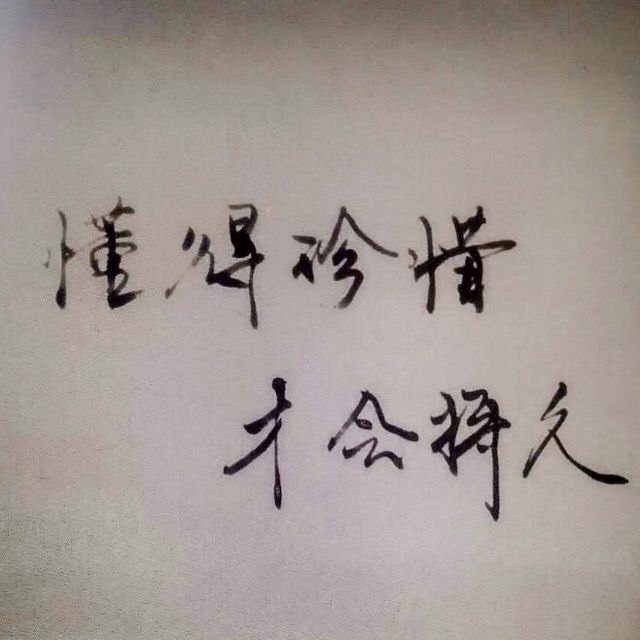 懂得珍惜
才会将久